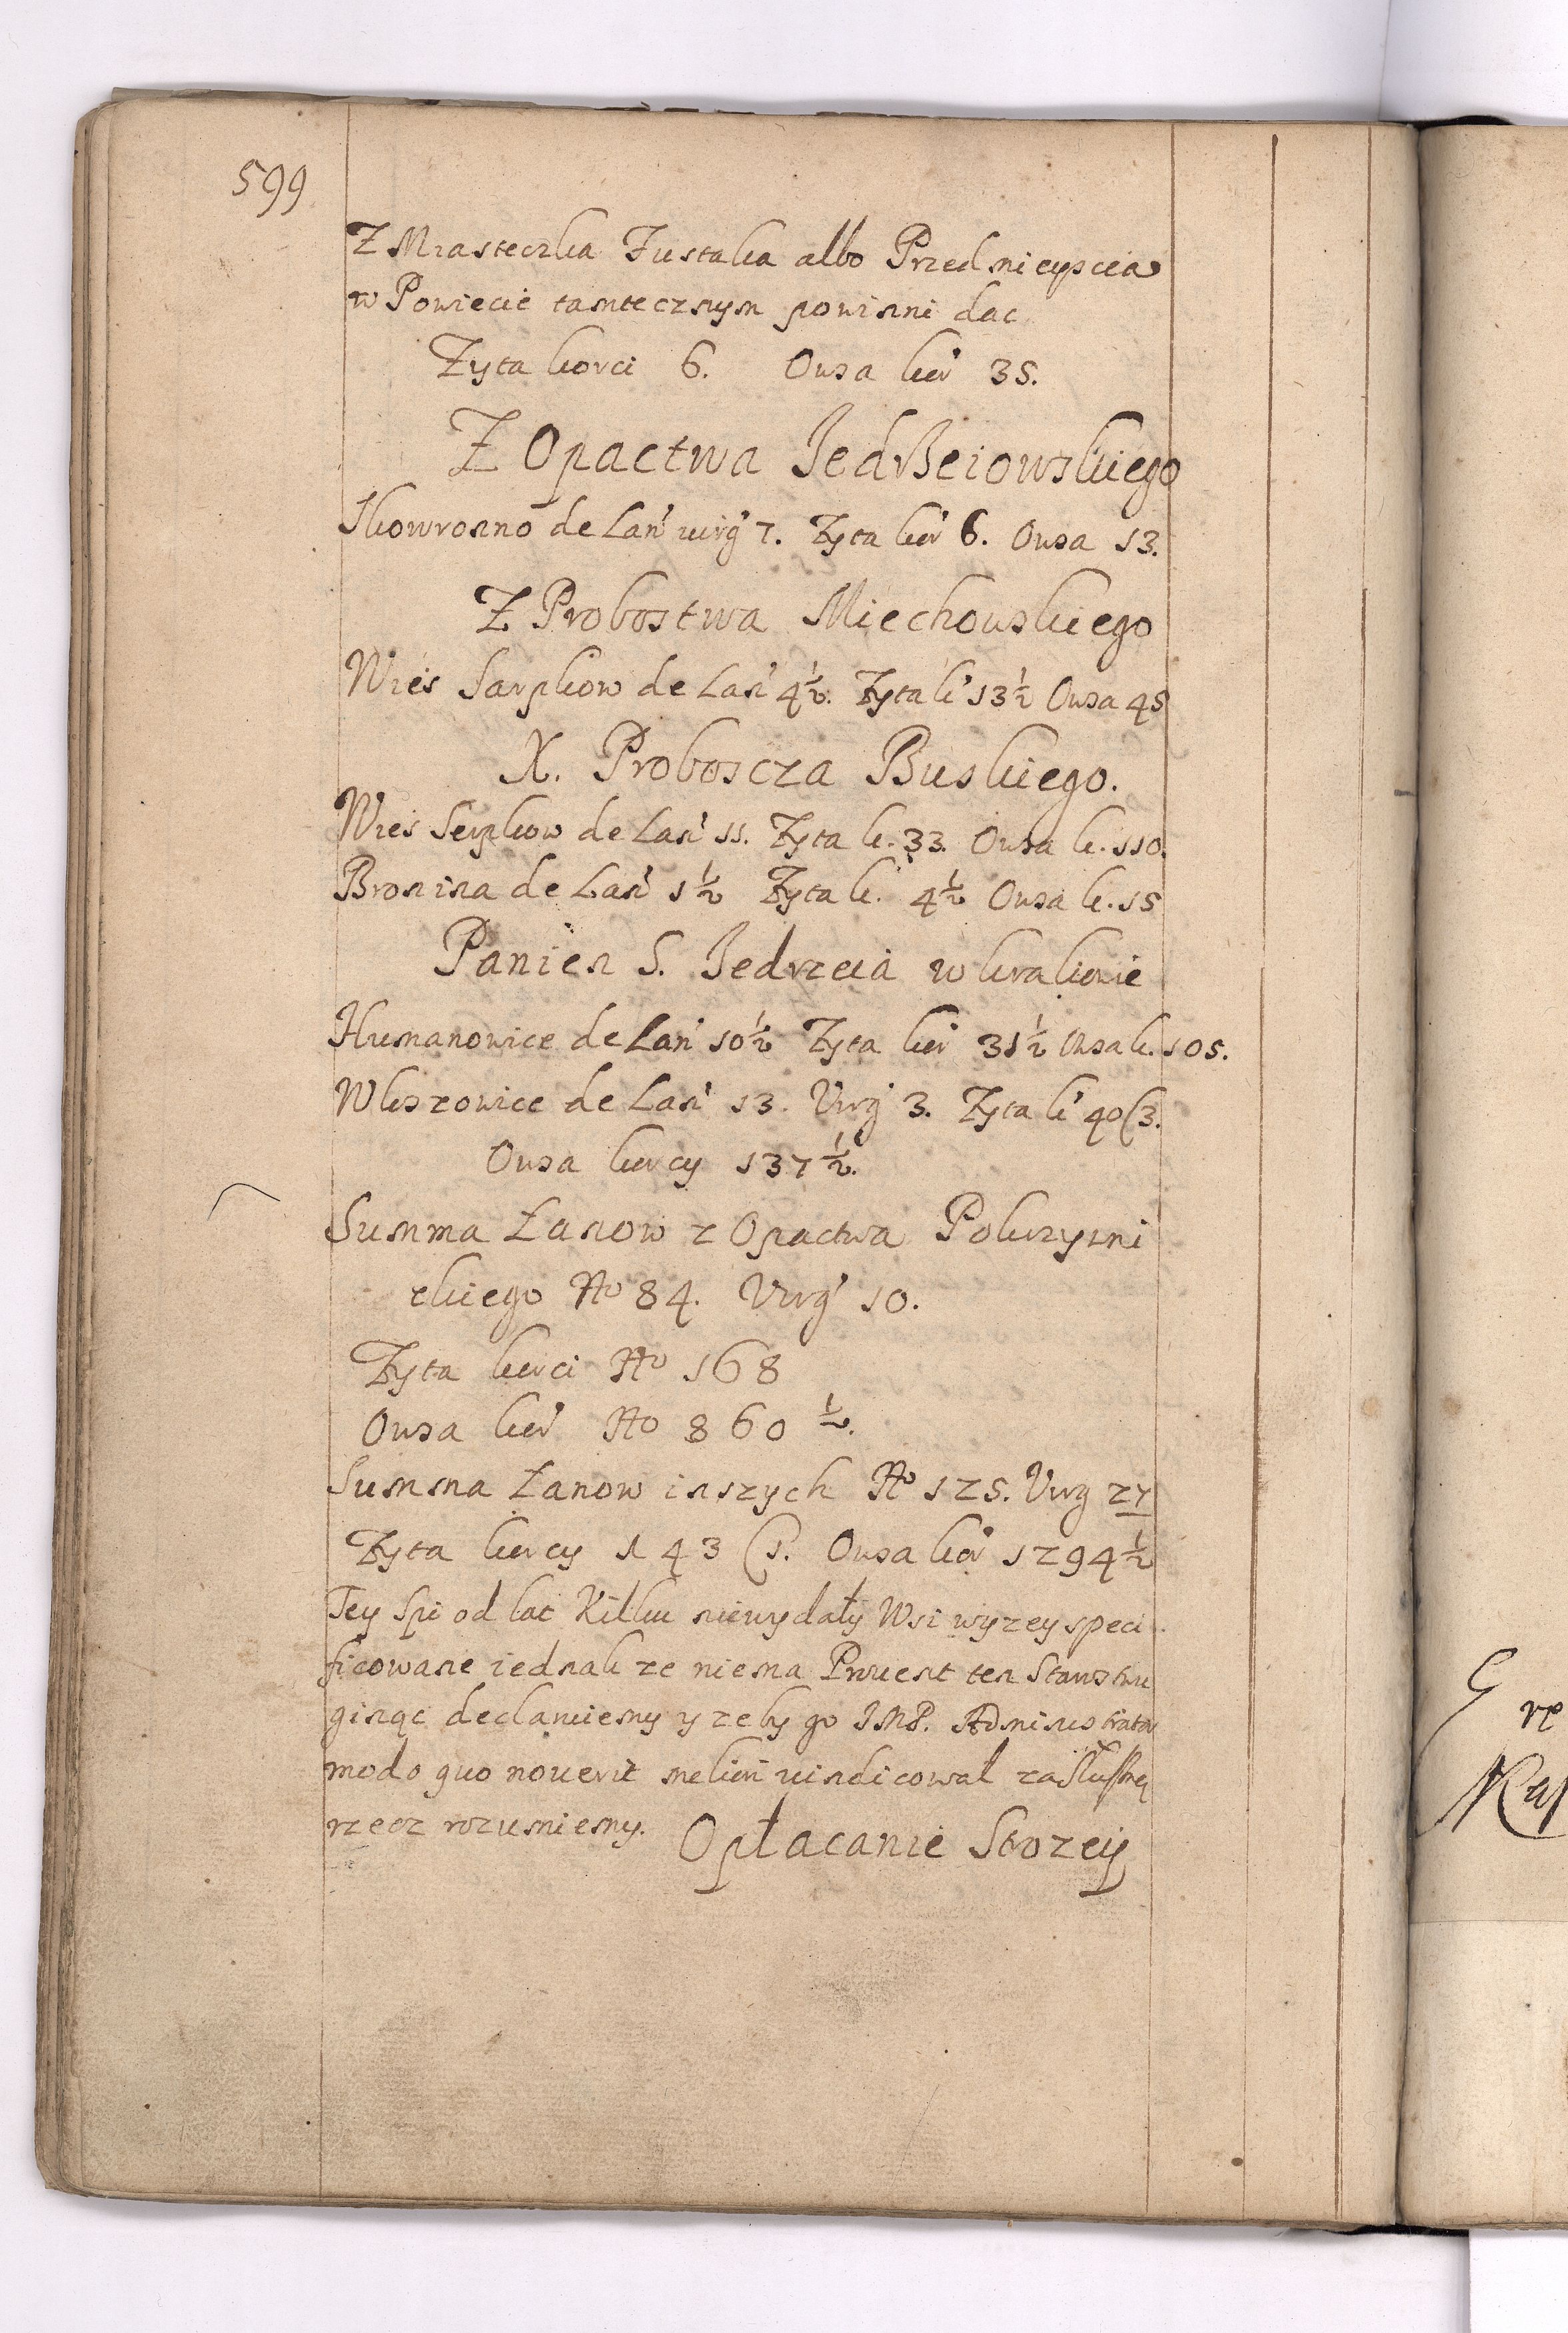 599
Z Miasteczka Justaka albo Przedmieyscia
w Powiecie tamtecznym powinni dac
Zyta korci 6. Owsa kor 35.
Z Opactwa Jedrzeiowskiego
Skowronno de Lan virg 7. Zyta kor 6. Owsa 13.
Z Probostwa Miechowskiego
Wies Sarpkow de Lan 4½. Zyta k 13½ Owsa 45
X. Proboscza Buskiego.
Wies Serpkow de Lan 11. Zyta k. 33. Owsa k. 110.
Bronina de Lan 1½ Zyta k. 4½ Owsa k. 15
Panien S. Jedrzeia w Krakowie
Humanowice de Lan 10½ Zyta kor 31½ Owsa k. 105.
Wloszowice de Lan 13. Virg 3. Zyta k 40(3.
Owsa korcy 137½.
Summa Łanow z Opactwa Pokrzywni
ckiego No 84. Virg 10.
Zyta korci No 168
Owsa kor No 860½.
Summa Łanow inszych No 125. Virg 27
Zyta korcy 143(1. Owsa kor 1294½
Tey Spi od lat Kilku niewydały Wsi wyzey speci
ficowane iednak ze niema Provent ten Starostwu
ginąc declaruiemy y zeby go JMP. Administrator
modo quo noverit meliori vindicował za słuszną
rzecz rozumiemy. Opłacanie Strozey
G
re